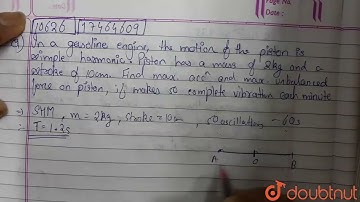 Page No.
Date:
10626 17464609
Q) In a gasoline engine, the motion of the piston is
simple harmonic. Piston has a mass of 2kg and a
stroke of 10cm. Find max. accⁿ and max. unbalanced
force on piston, if makes 50 complete vibration each minute
→ SHM, m = 2kg, stroke = 10cm, 50 oscillations - 60s
∴ T = 1.2s
A O B
doubtnut